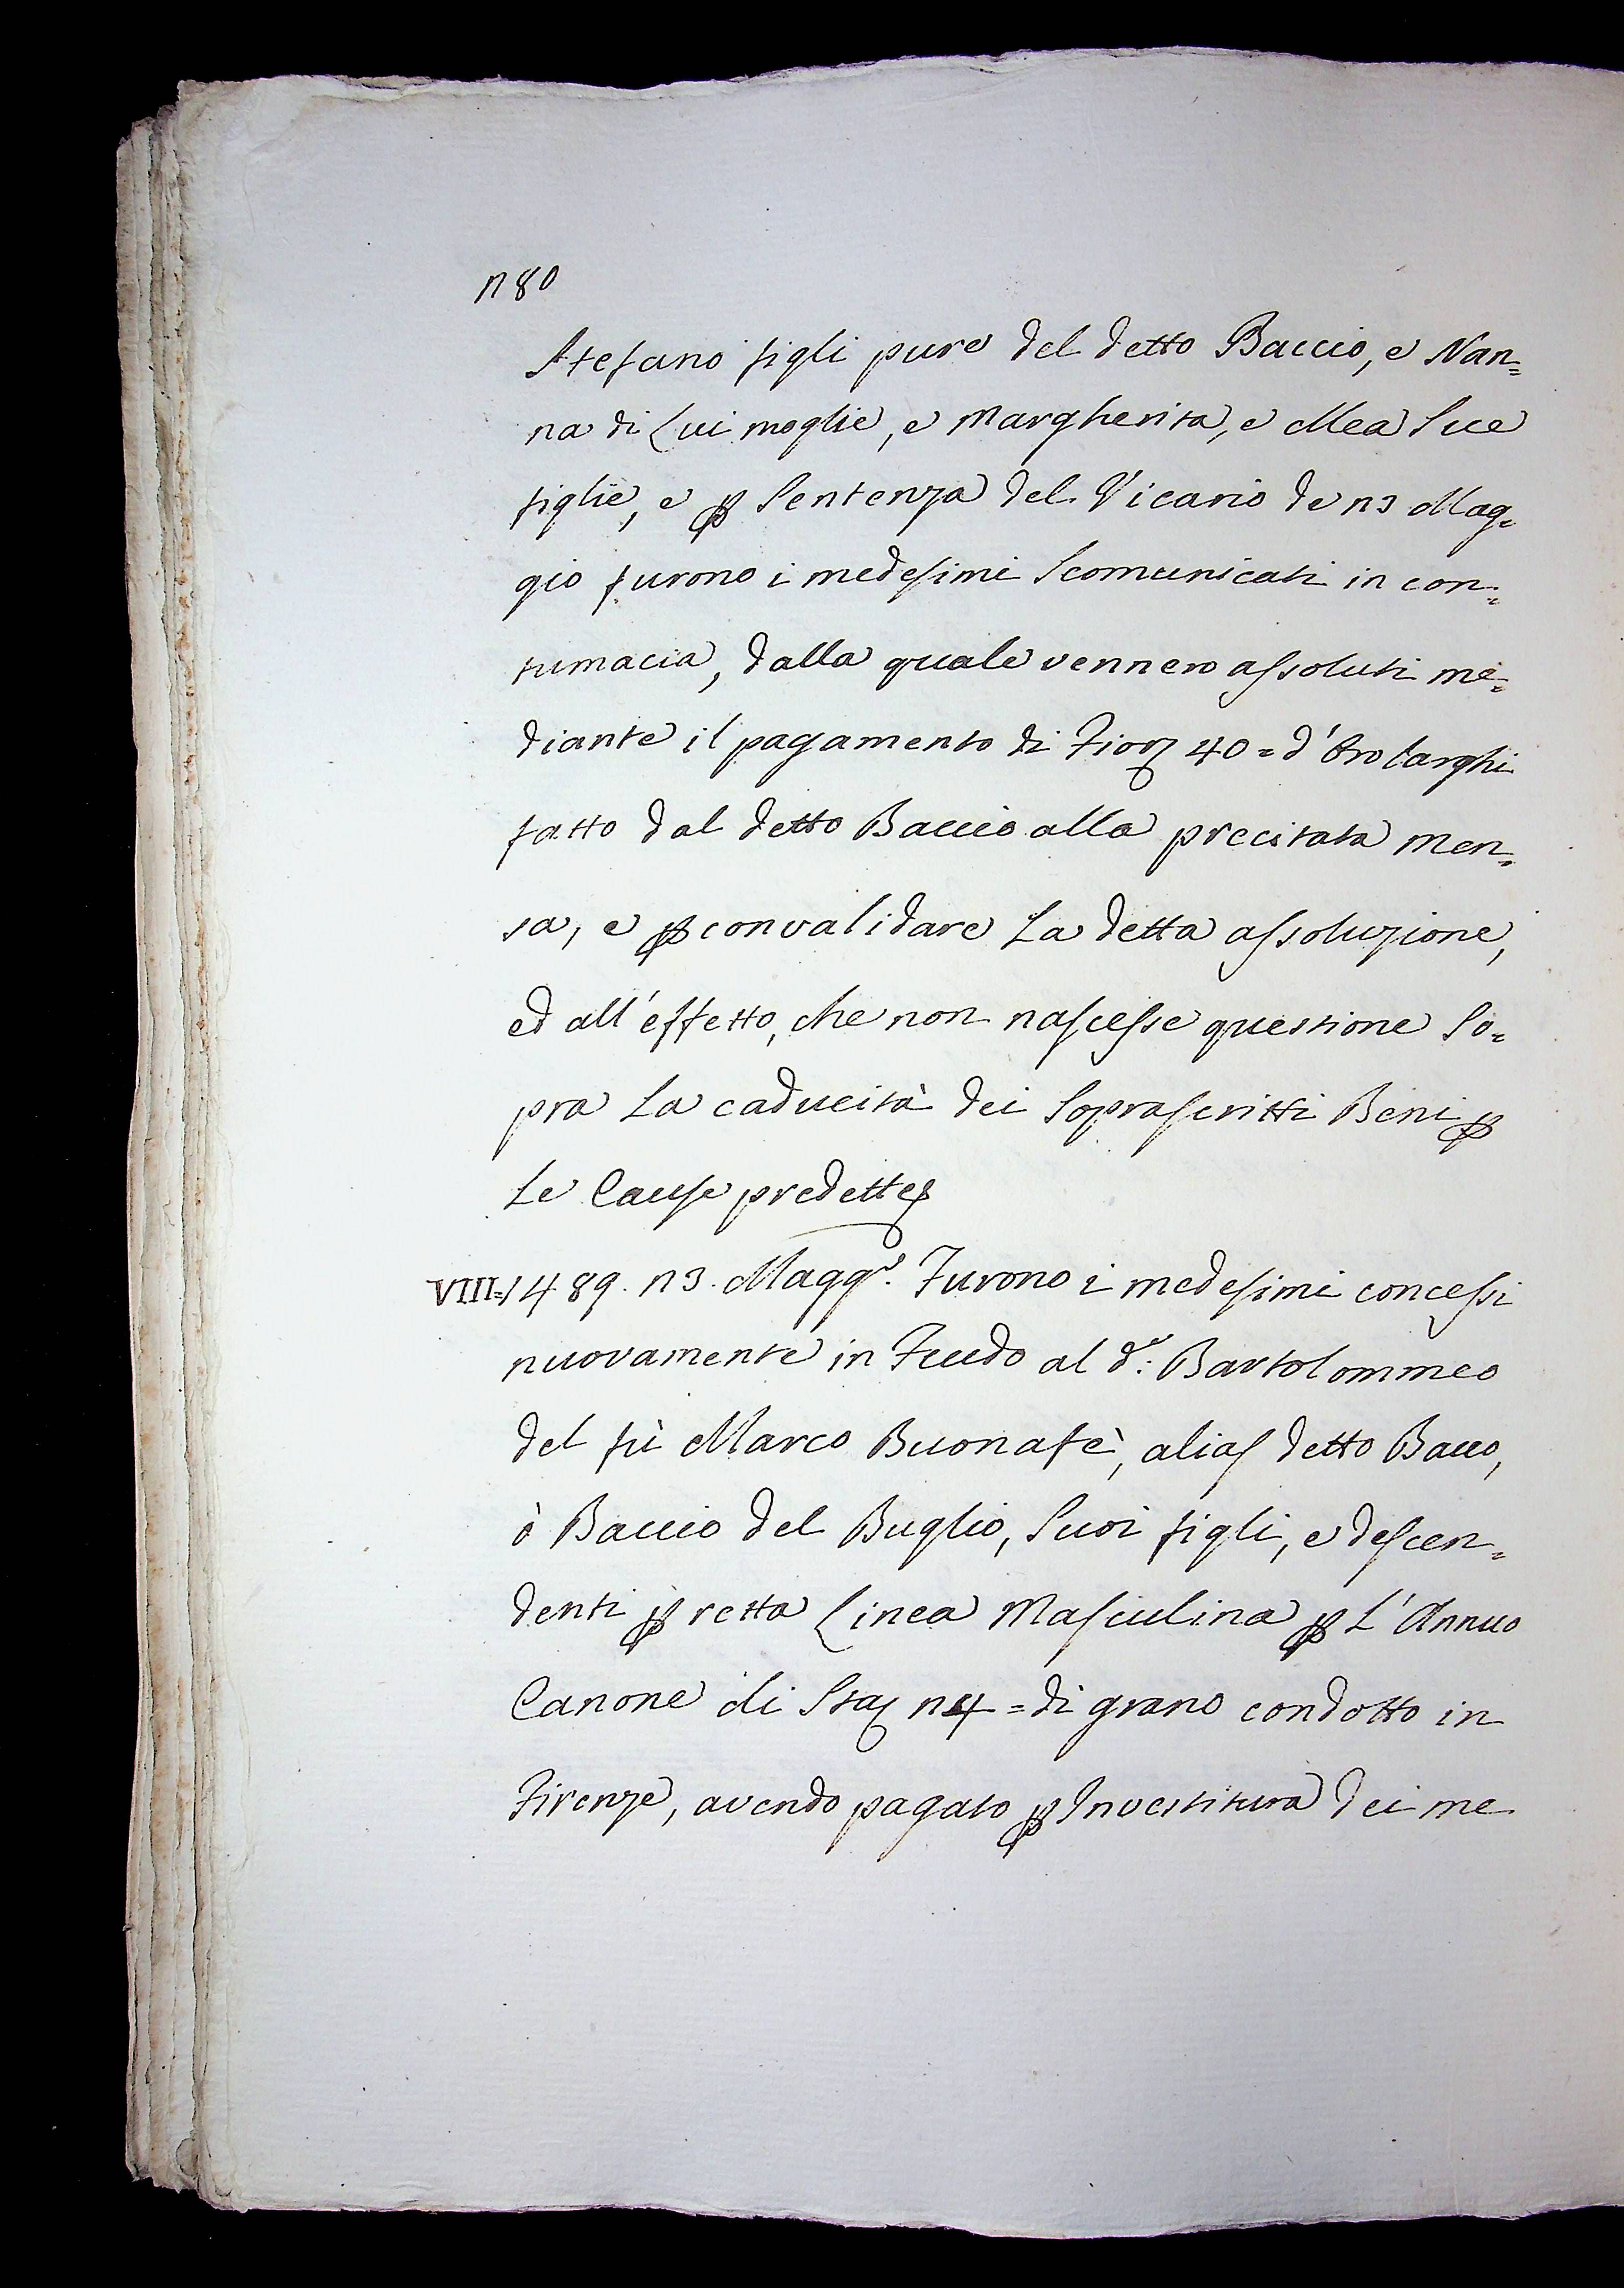 180
Stefano figli pure del detto Baccio, e Nan=
na di Lui moglie, e Margherita, e Mea Sue
figlie, e p Sentenza del Vicario de 13 Mag=
gio furono i medesimi Scomunicati in con=
tumacia, dalla quale vennero assoluti me=
diante il pagamento di Fior 40 = d'Oro larghi
fatto dal detto Baccio alla precitata Men=
sa, e p convalidare La detta assoluzione,
ed all'effetto, che non nascesse questione So=
pra La caducità dei Soprascritti Beni p
Le Cause predette
VIII = 1489. 13. Magg.º Furono i medesimi concessi
nuovamente in Feudo al d.º: Bartolommeo
del fù Marco Buonafè, alias detto Bacco,
ò Baccio del Buglio, Suoi figli, e descen=
denti p retta Linea Masculina p L'Annuo
Canone di Sta 14 = di grano condotto in
Firenze, avendo pagato p Investitura dei me